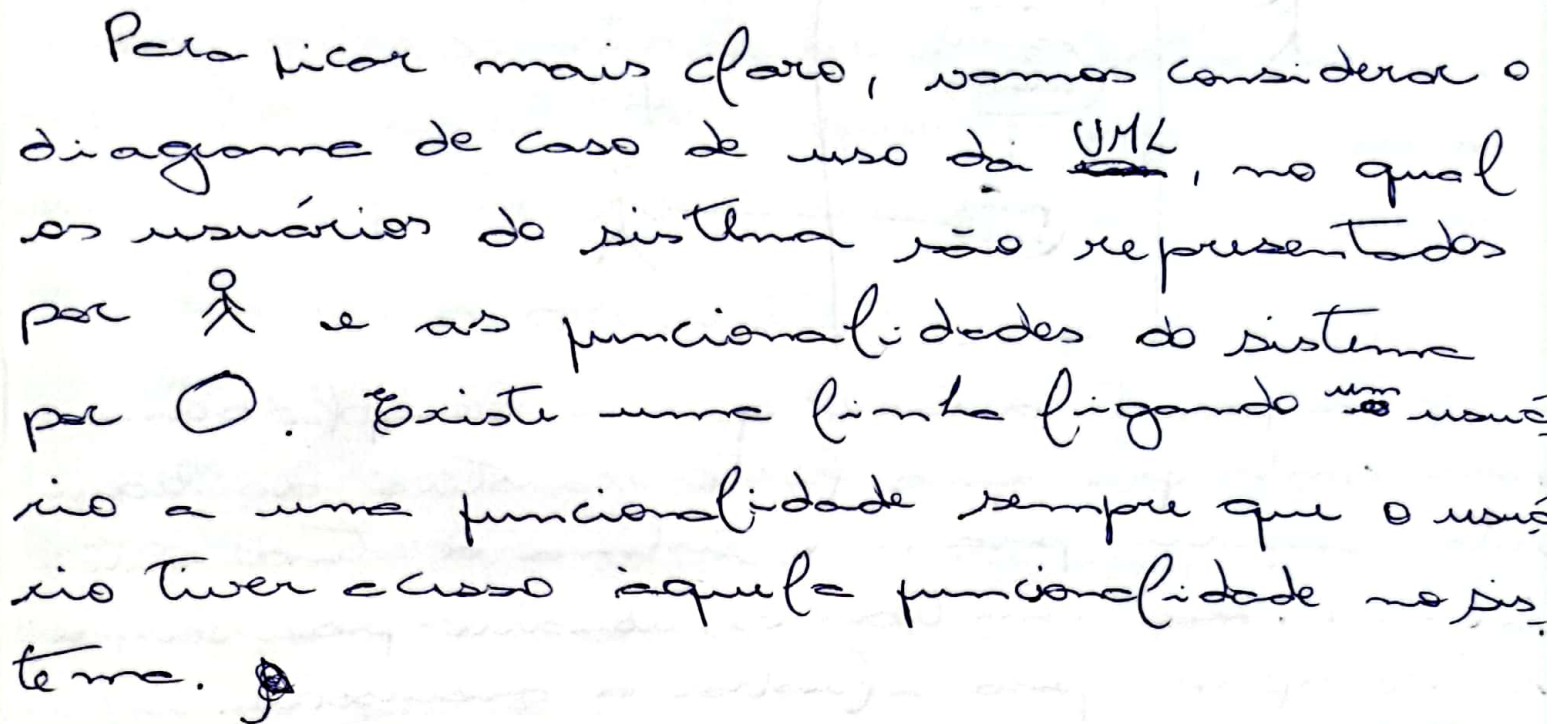 Para ficar mais claro, vamos considerar o
diagrama de caso de uso da UML, no qual
os usuários do sistema são representados
por e as funcionalidades do sistema
por . Existe uma linha ligando um usuá
rio a uma funcionalidade sempre que o usuá
rio tiver acesso àquela funcionalidade no sis
tema.